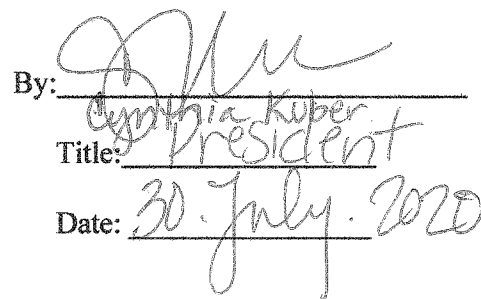 By:
Cynthia Kuper
Title: President
Date: 30. July. 2020